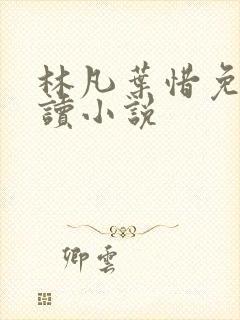 林凡葉惜免
讀小說
卿雲